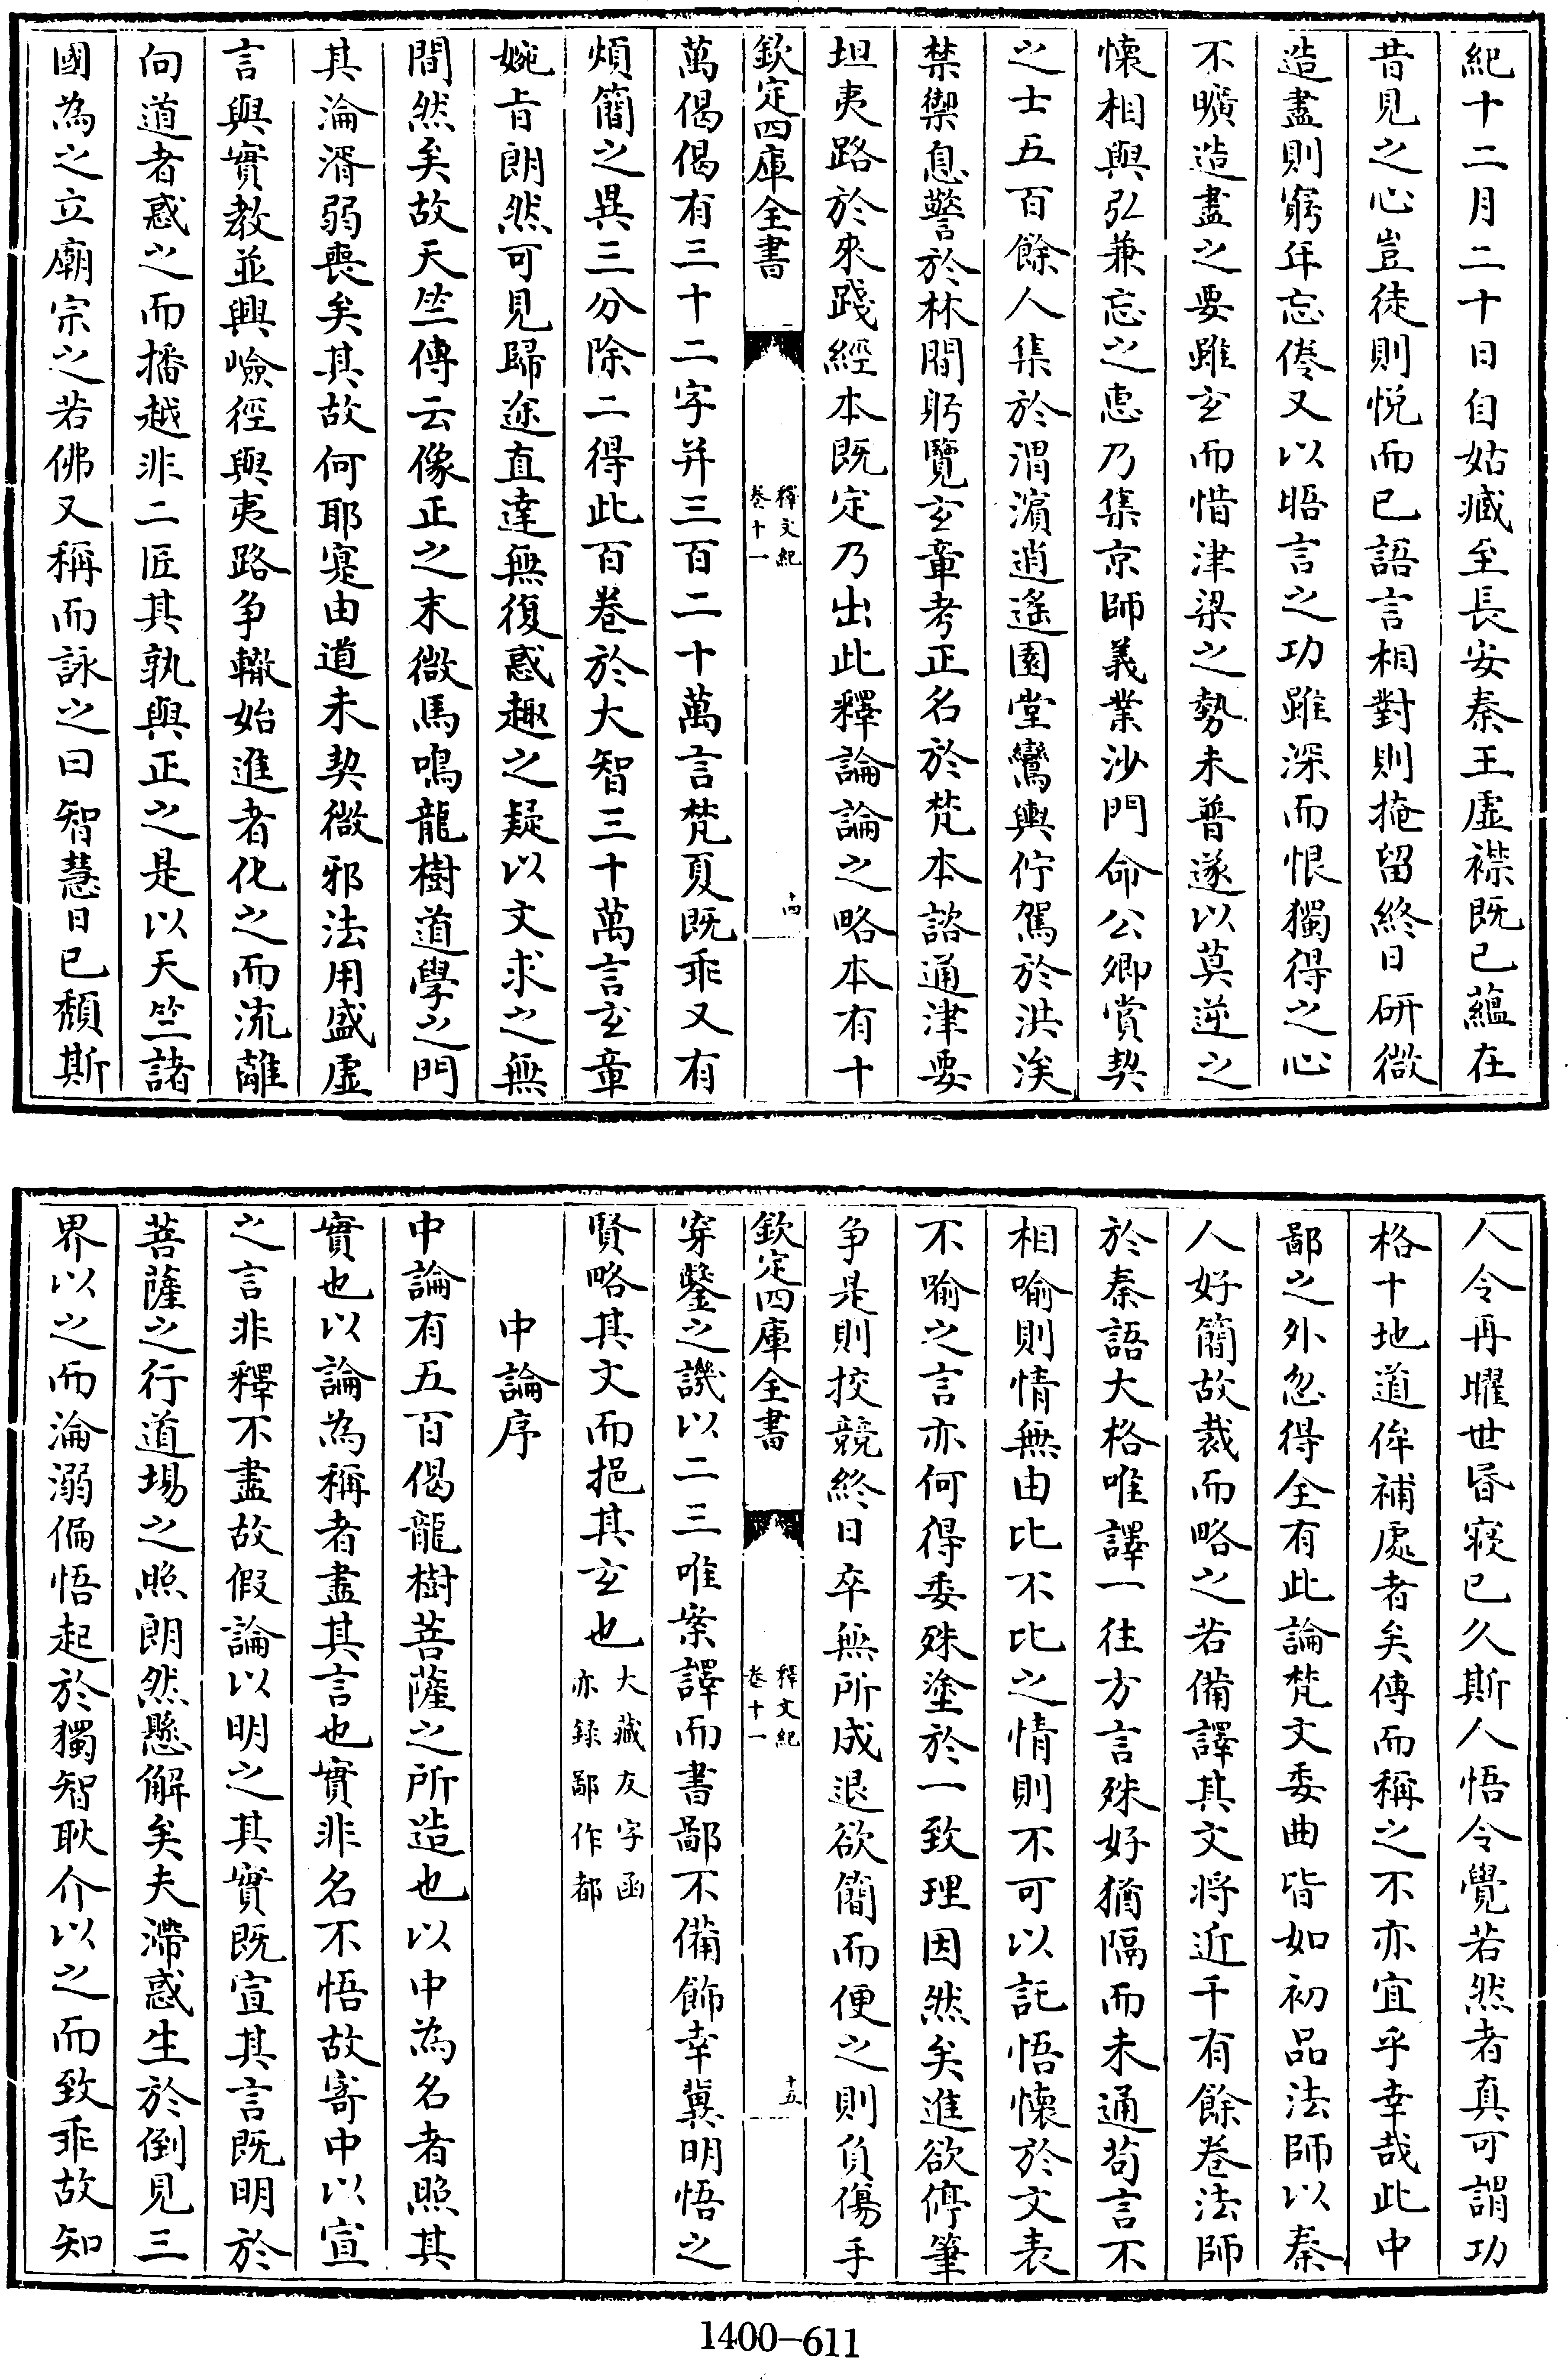 紀十二月二十日自姑臧至長安秦王虛襟既已蘊在
昔見之心豈徒則悅而已語言相對則掩留終日研微
造盡則窮年忘倦又以晤言之功雖深而恨獨得之心
不曠造盡之要雖玄而惜津梁之勢未普遂以莫逆之
懷相與弘兼忘之惠乃集京師義業沙門命公卿賞契
之士五百餘人集於渭濱逍遙園堂鸞輿佇駕於洪涘
禁禦息警於林間躬覽玄章考正名於梵本諮通津要
坦夷路於來踐經本既定乃出此釋論論之略本有十
欽定四庫全書
釋文紀
卷十一
十四
萬偈偈有三十二字并三百二十萬言梵夏既乖又有
煩簡之異三分除二得此百卷於大智三十萬言玄章
婉旨朗然可見歸途直達無復惑趣之疑以文求之無
間然矣故天竺傳云像正之末微馬鳴龍樹道學之門
其淪湑弱喪矣其故何耶寔由道未契微邪法用盛虛
言與實教並興嶮徑與夷路争轍始進者化之而流離
向道者惑之而播越非二匠其孰與正之是以天竺諸
國為之立廟宗之若佛又稱而詠之曰智慧日已頹斯
人令再曜世昏寢已久斯人悟令覺若然者真可謂功
格十地道侔補處者矣傳而稱之不亦宜乎幸哉此中
鄙之外忽得全有此論梵文委曲皆如初品法師以秦
人好簡故裁而略之若備譯其文将近千有餘卷法師
於秦語大格唯譯一往方言殊好猶隔而未通苟言不
相喻則情無由比不比之情則不可以託悟懷於文表
不喻之言亦何得委殊塗於一致理因然矣進欲停筆
争是則挍競終日卒無所成退欲簡而便之則負傷手
欽定四庫全書
釋文紀
卷十一
十五
穿鑿之譏以二三唯案譯而書鄙不備飾幸冀明悟之
賢略其文而挹其玄也大藏友字函
亦録鄙作都
中論序
中論有五百偈龍樹菩薩之所造也以中為名者照其
實也以論為稱者盡其言也實非名不悟故寄中以宣
之言非釋不盡故假論以明之其實既宣其言既明於
菩薩之行道場之照朗然懸解矣夫滯惑生於倒見三
界以之而淪溺偏悟起於獨智耿介以之而致乖故知
1400-611